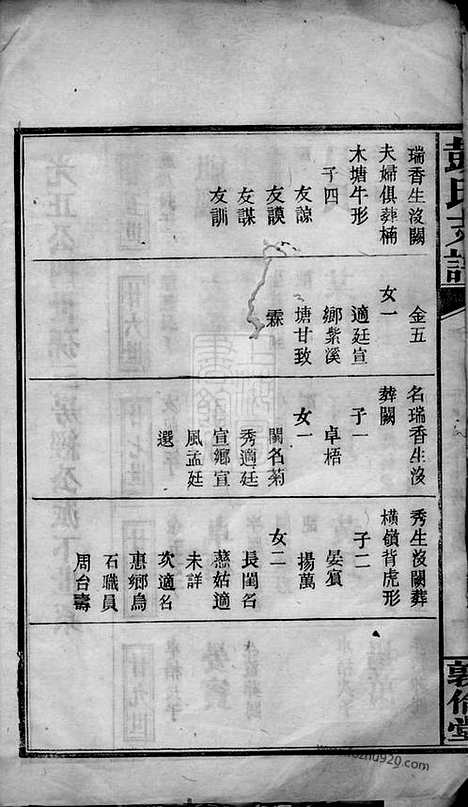 彭氏支譜
敦倫堂
瑞香生沒闕
夫婦俱葬楠
木塘牛形
子四
友諒
友謨
友謀
友訓
金五
女一
適廷宣
鄉紫溪
塘甘致
霖
名瑞香生沒
葬闕
子一
卓梧
女一
閨名菊
秀適廷
宣鄉宣
風孟廷
選
秀生沒闕葬
橫嶺背虎形
子二
晏賓
揚萬
女二
長閨名
慈姑適
未詳
次適名
惠鄉鳥
石職員
周台壽